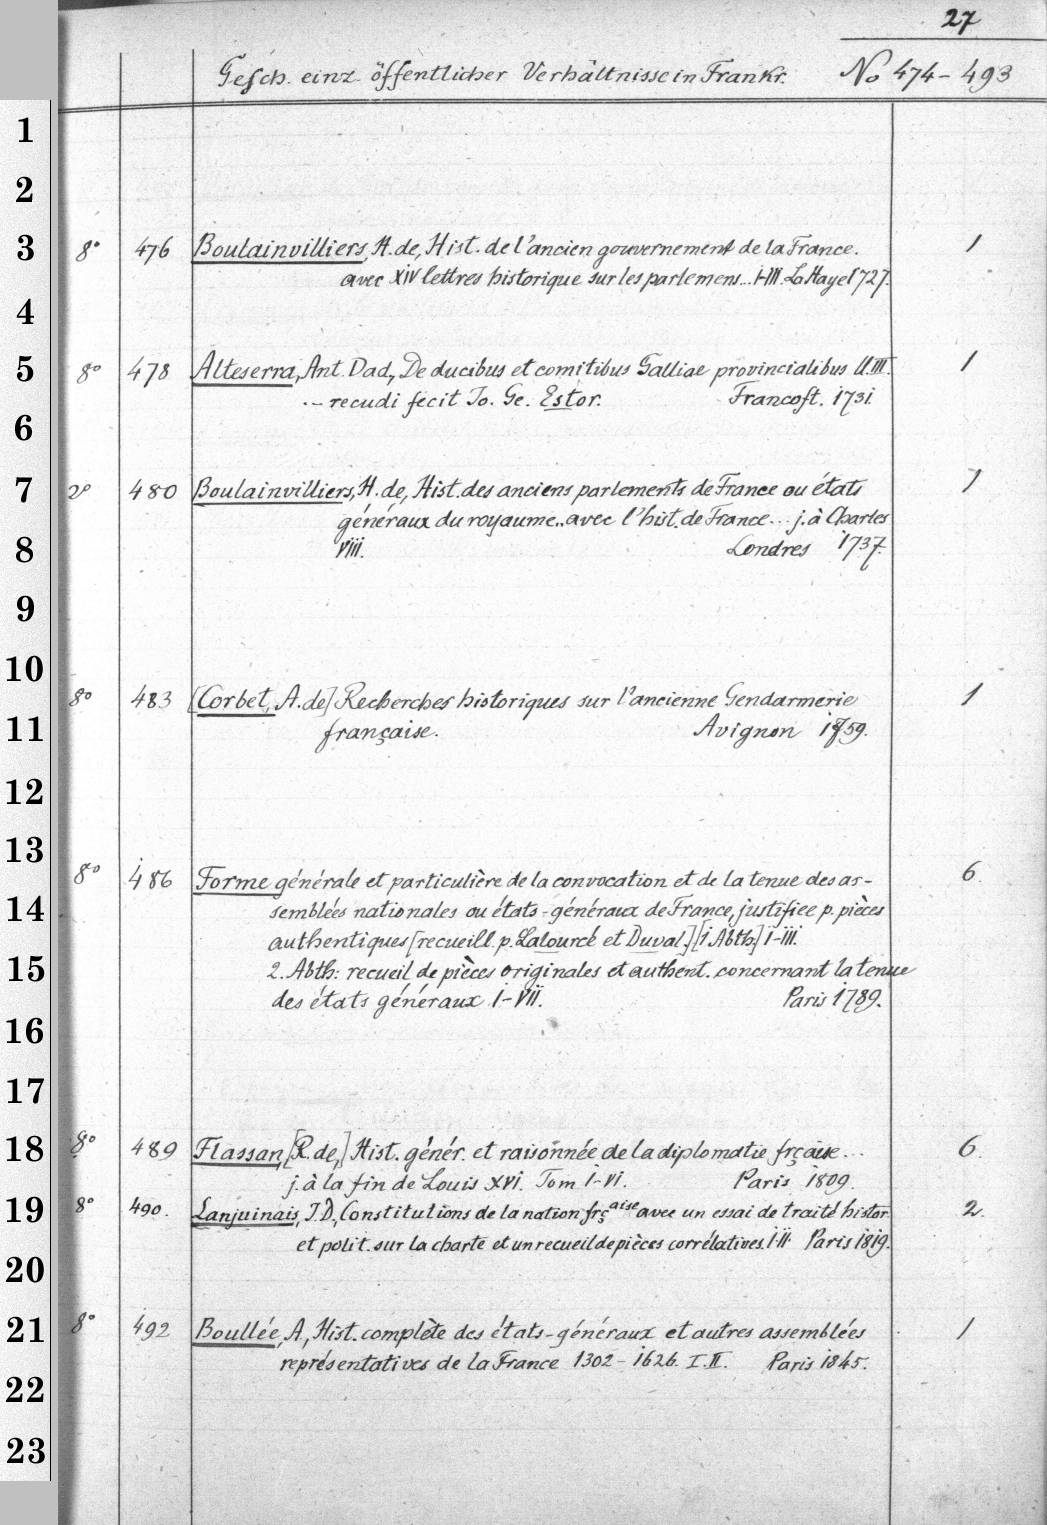 27
Gesch. einz. öffentlicher Verhältnisse in Frankr. No 474-493
1
2
3 8° 476 Boulainvilliers, H. de, Hist. de l'ancien gouvernement de la France. 1
avec XIV lettres historique sur les parlemens... I-III. La Haye 1727.
4
5 8° 478 Alteserra, Ant. Dad., De ducibus et comitibus Galliae provincialibus ll. III. 1
.- recudi fecit Jo. Ge. Estor. Francoft. 1731.
6
7 2° 480 Boulainvilliers, H. de, Hist. des anciens parlements de France ou états 1
généraux du royaume.. avec l'hist. de France... j. à Charles
8 VIII. Londres 1737.
9
10
8° 483 [Corbet, A. de] Recherches historiques sur l'ancienne Gendarmerie 1
11 française. Avignon 1759.
12
13
8° 486 Forme générale et particulière de la convocation et de la tenue des as- 6.
14 semblées nationales ou états-généraux de France, justifiee p. pièces
authentiques [recueill. p. Lalourcé et Duval.] [1. Abth] I-III.
15 2. Abth: recueil de pièces originales et authent. concernant la tenue
des états généraux I-VII. Paris 1789.
16
17
18 8° 489 Flassan, [R. de,] Hist. génér. et raisonnée de la diplomatie frçaise... 6.
j. à la fin de Louis XVI. Tom I-VI. Paris 1809.
19 8° 490. Lanjuinais, J. D., Constitutions de la nation frçaise avec un essai de traité histor. 2.
et polit. sur la charte et un recueil de pièces corrélatives. I-II. Paris 1819.
20
21 8° 492 Boullée, A., Hist. complète des états-généraux et autres assemblées 1
représentatives de la France 1302-1626. I. II. Paris 1845.
22
23